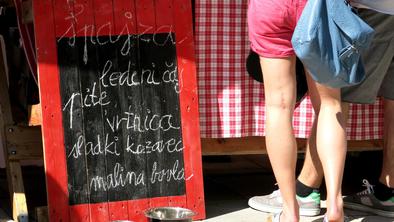 Špajza
ledeni čaj
pite
vrtnica
sladki kozarec
malina borla